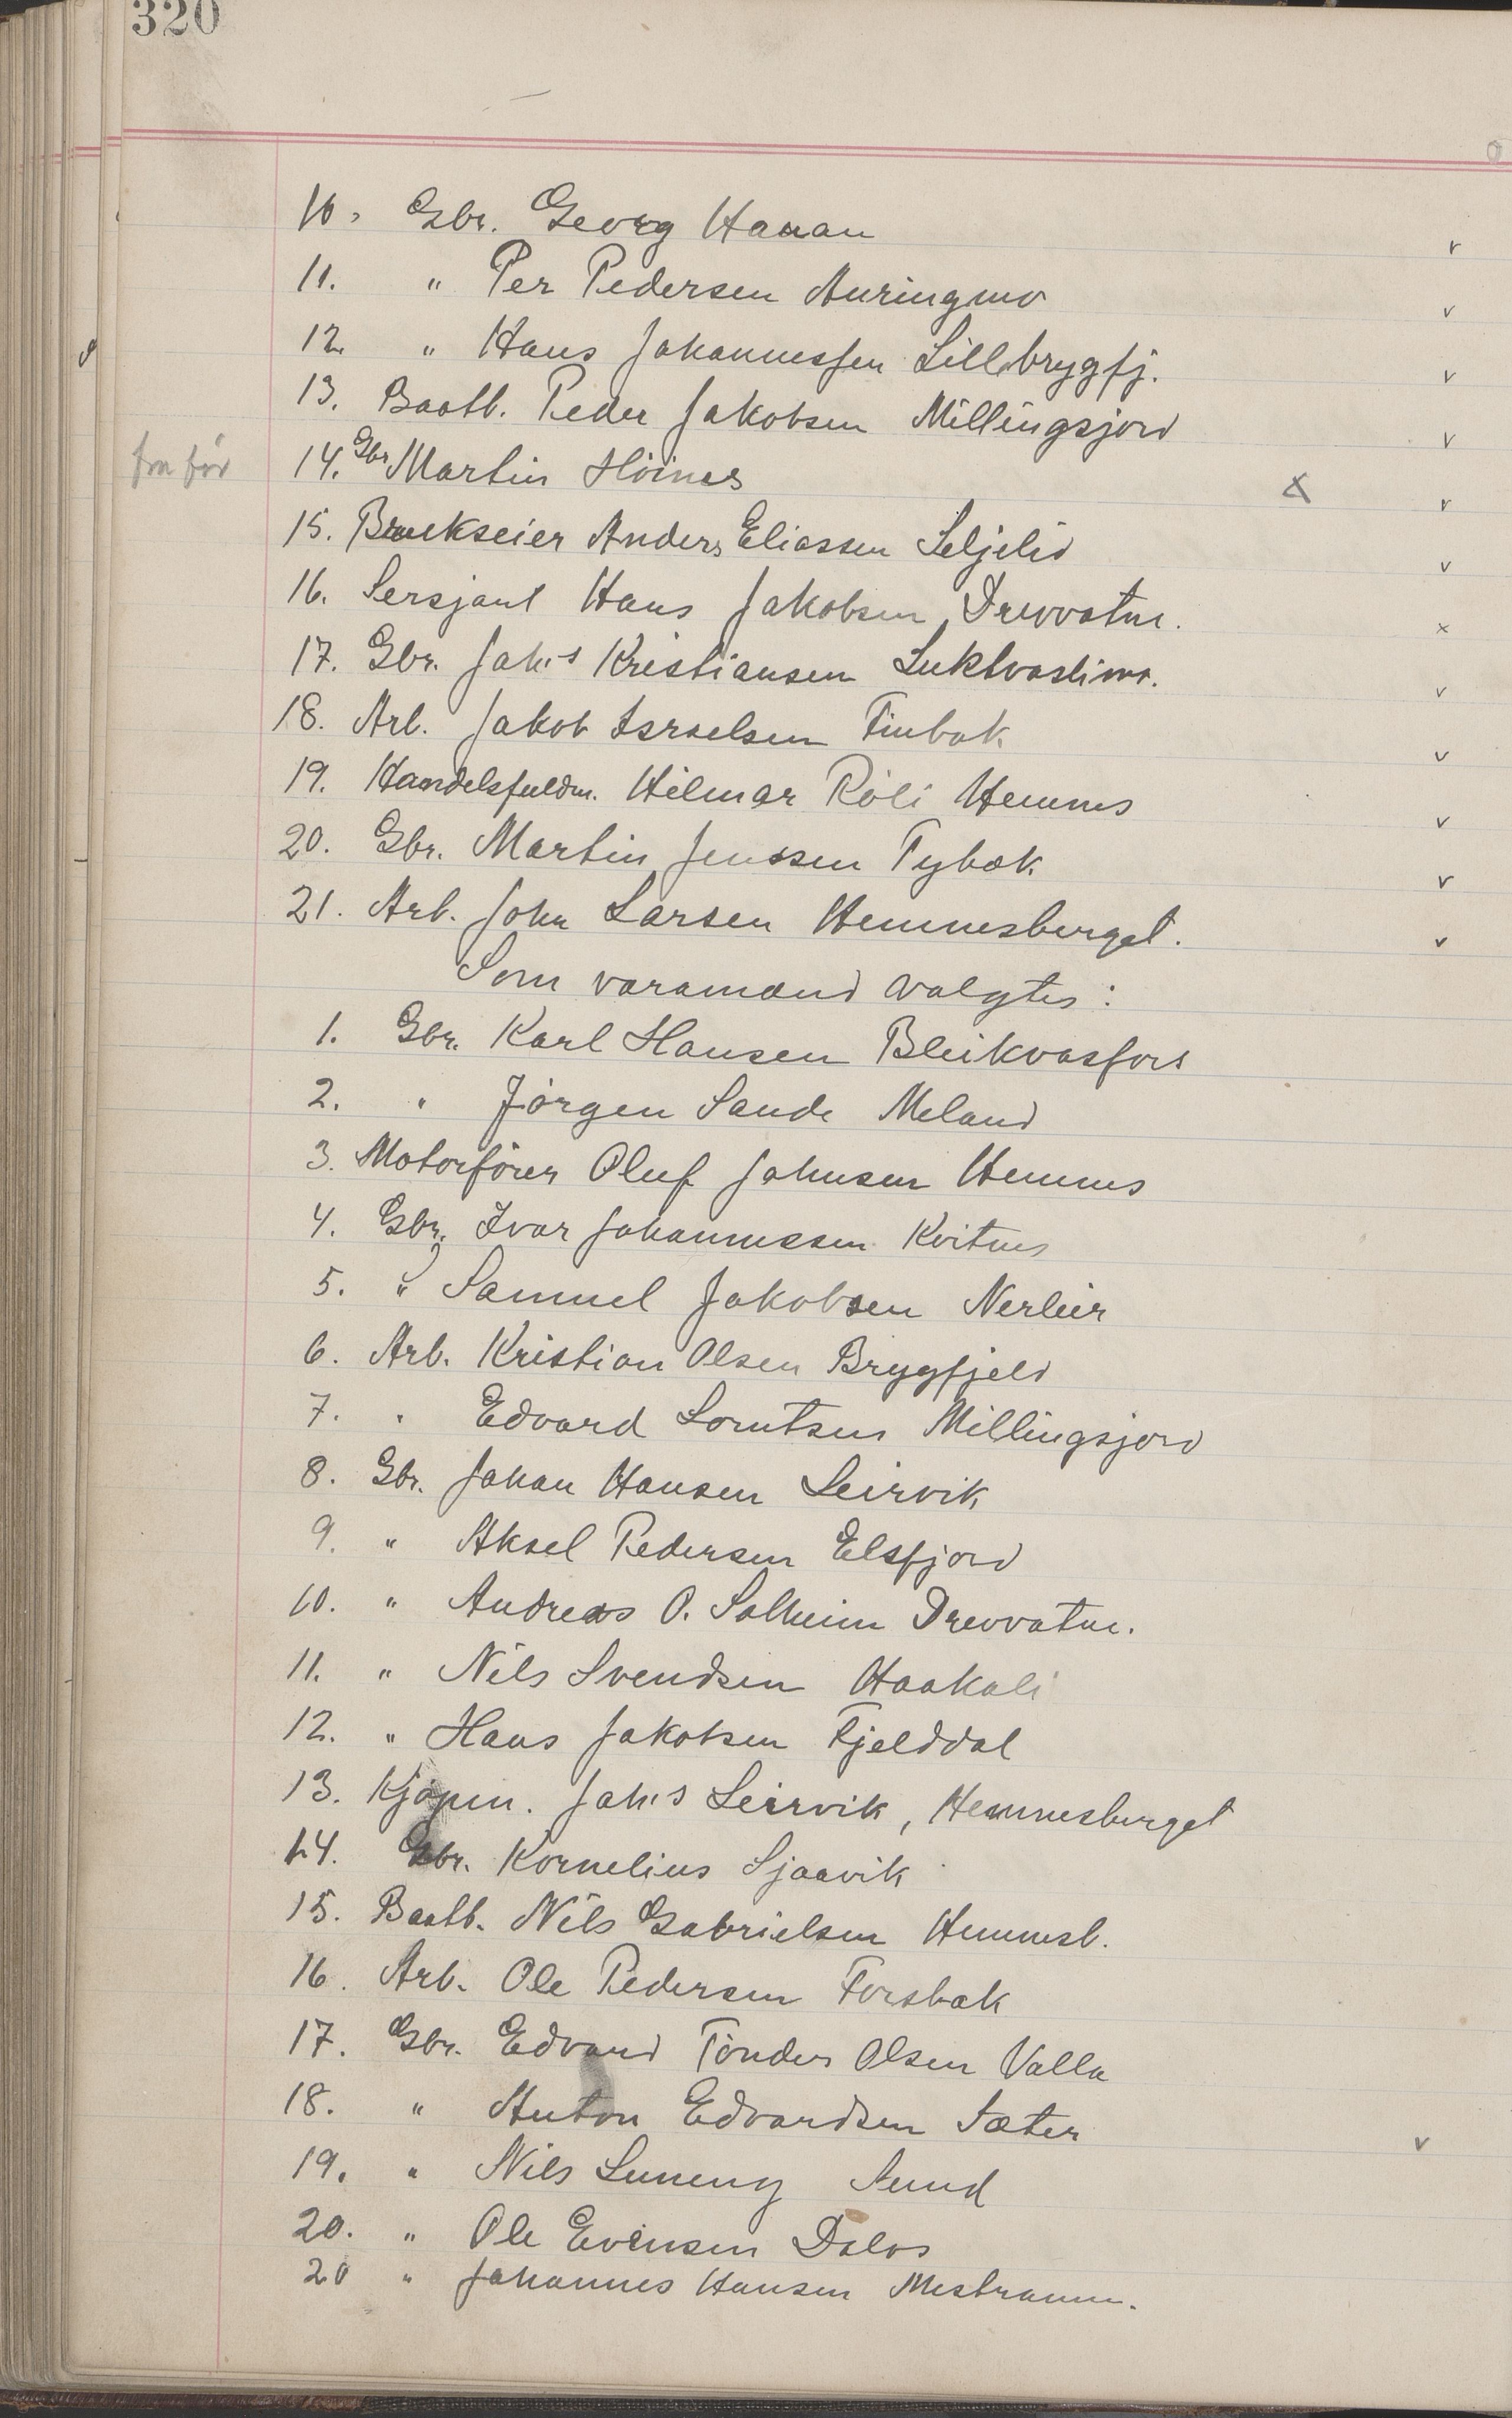 320
10. Gbr. Georg Hauan
11. " Per Pedersen Auringmo
12. " Hans Johannessen Lillebrygfj.
13. Baatb. Peder Jakobsen Millingsjord
fra før 14. Gbr Martin Høines
15. Brukseier Anders Eliassen Seljelid
16. Sersjant Hans Jakobsen, Drevvatne.
17. Gbr. Johs Kristiansen Luktvaslimo.
18. Arb. Jakob Israelsen Finbak
19. Handelsfuldm. Hilmar Røli Hemnes
20. Gbr. Martin Jenssen Tybæk
21. Arb. John Larsen Hemnesberget.
Som varamænd valgtes:
1. Gbr. Karl Hansen Bleikvasfors
2. " Jørgen Sande Meland
3. Motorfører Oluf Johnsen Hemnes
4. Gbr. Ivar Johannessen Kvitnes
5. " Samuel Jakobsen Nerleir
6. Arb. Kristian Olsen Brygfjeld
7. " Edvard Lorntsen Millingsjord
8. Gbr. Johan Hansen Leirvik
9. " Aksel Pedersen Elsfjord
10. " Andreas O. Solheim Drevvatne.
11. " Nils Svendsen Haakali
12. " Hans Jakobsen Fjelddal
13. Kjøpm. Johs Leirvik, Hemnesberget
14. Gbr. Kornelius Sjaavik
15. Baatb. Nils Gabrielsen Hemnesb.
16. Arb. Ole Pedersen Forsbak
17. Gbr. Edvard Tønder Olsen Valla
18. " Anton Edvardsen Sæter
19. " Nils Luneng Sund
20. " Ole Evensen Dalos
20 " Johannes Hansen